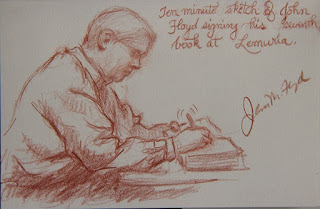 Ten minute sketch of John
Floyd signing his seventh
book at Lemuria.
John M. Floyd